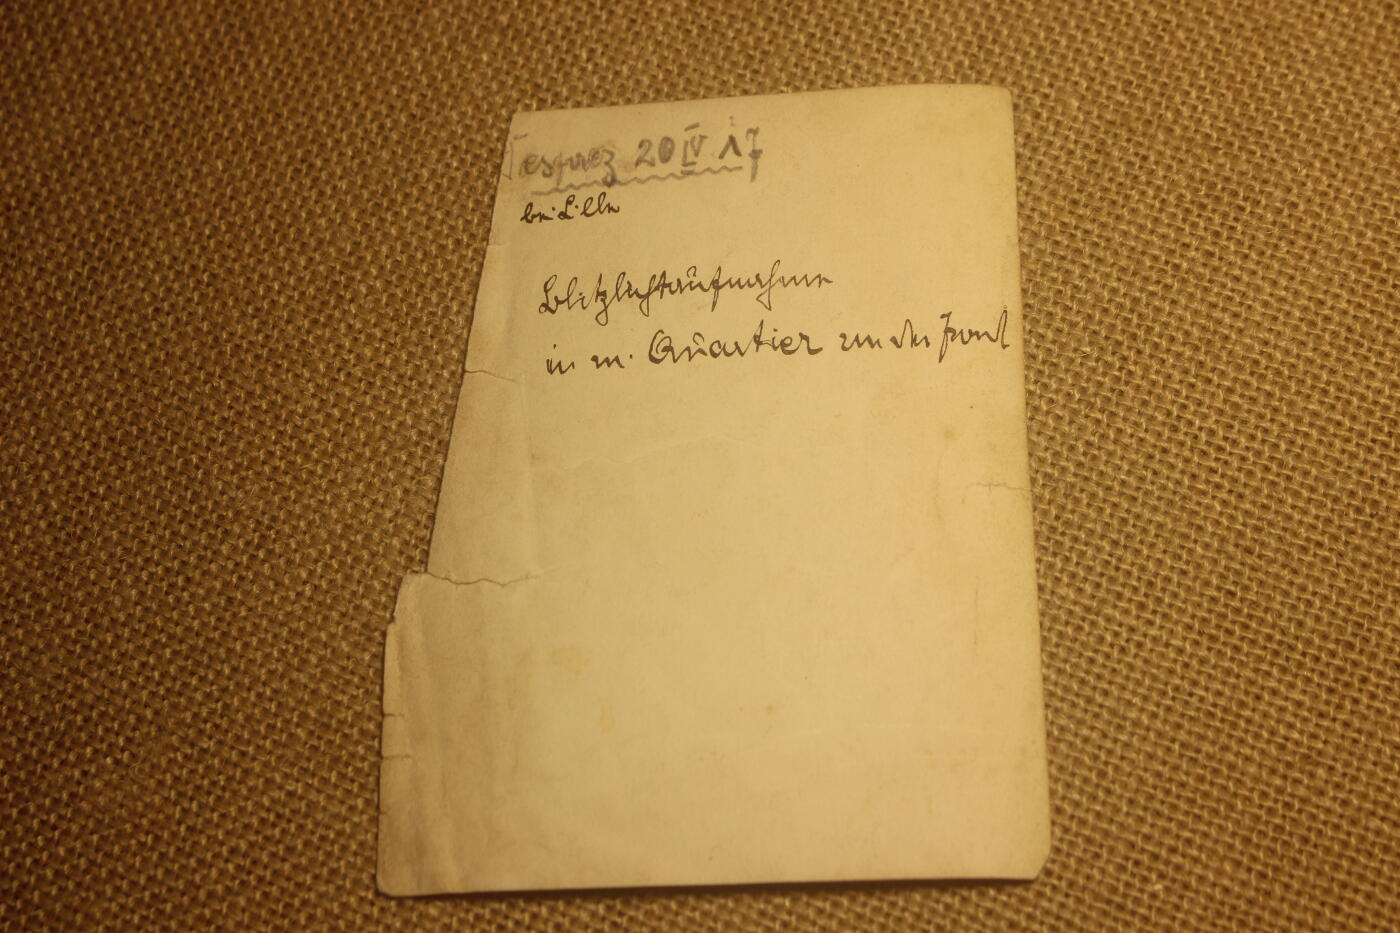 20 IV 17
bei Lille
Blitzlichtaufnahme
in m. Quartier an der Front